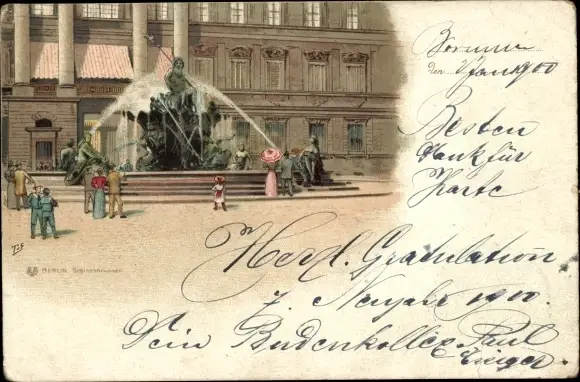 den Jan 1900
Besten
Dank für
Karte
Herzl. Gratulation
z. Neujahr 1900.
Dein Budenkollege Paul
BERLIN Schlossbrunnen